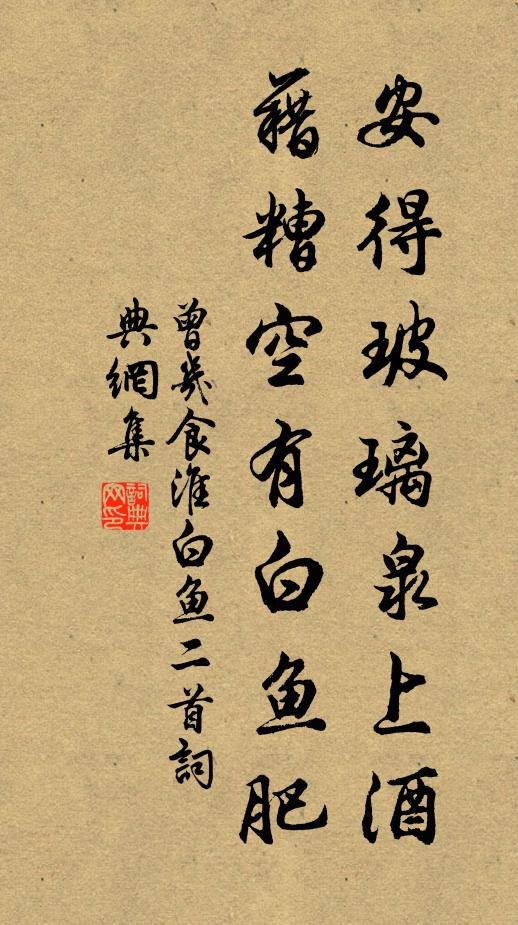 安得玻璃泉上酒
藉糟空有白鱼肥
曾幾食淮白鱼二首詞
典網集
詞典网印